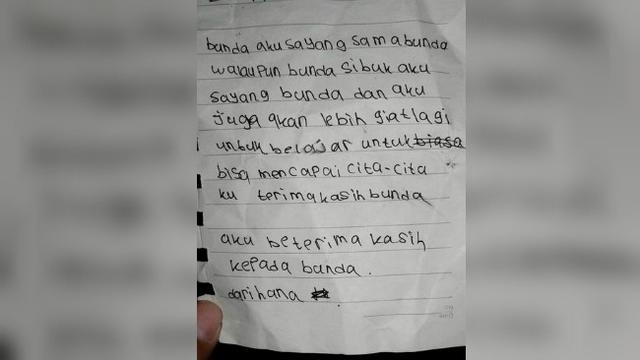 bunda aku sayang sama bunda
walaupun bunda sibuk aku
sayang bunda dan aku
juga akan lebih giat lagi
untuk belajar untuk biasa
bisa mencapai cita-cita
ku terimakasih bunda
aku beterima kasih
kepada bunda.
dari hana